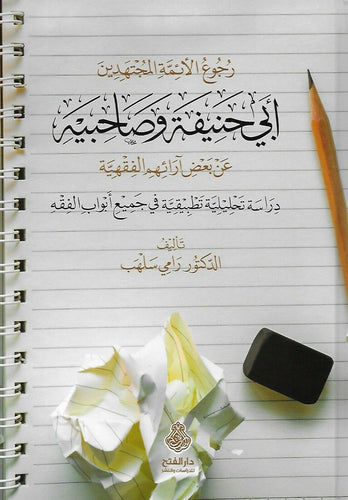 رُجُوعُ الأَئِمَّةِ المُجْتَهِدِينَ
أَبِي حَنِيفَةَ وَصَاحِبَيْهِ
عَنْ بَعْضِ آرَائِهِم الفِقْهِيَّةِ
دِرَاسَة تَحْلِيلِيَّة تَطْبِيقِيَّة فِي جَمِيْعِ أَبْوَابِ الفِقْه
تَأليْف
الدكتُور رَامِي سَلهَب
دار الفتح
للدراسات والنشر